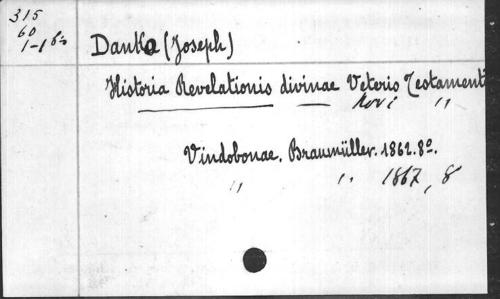 315
60
1-1 bis
Danko (Joseph)
Historia Revelationis divinae Veteris Testamenti
Novi "
Vindobonae. Braumüller. 1862. 8º.
" " 1867, 8